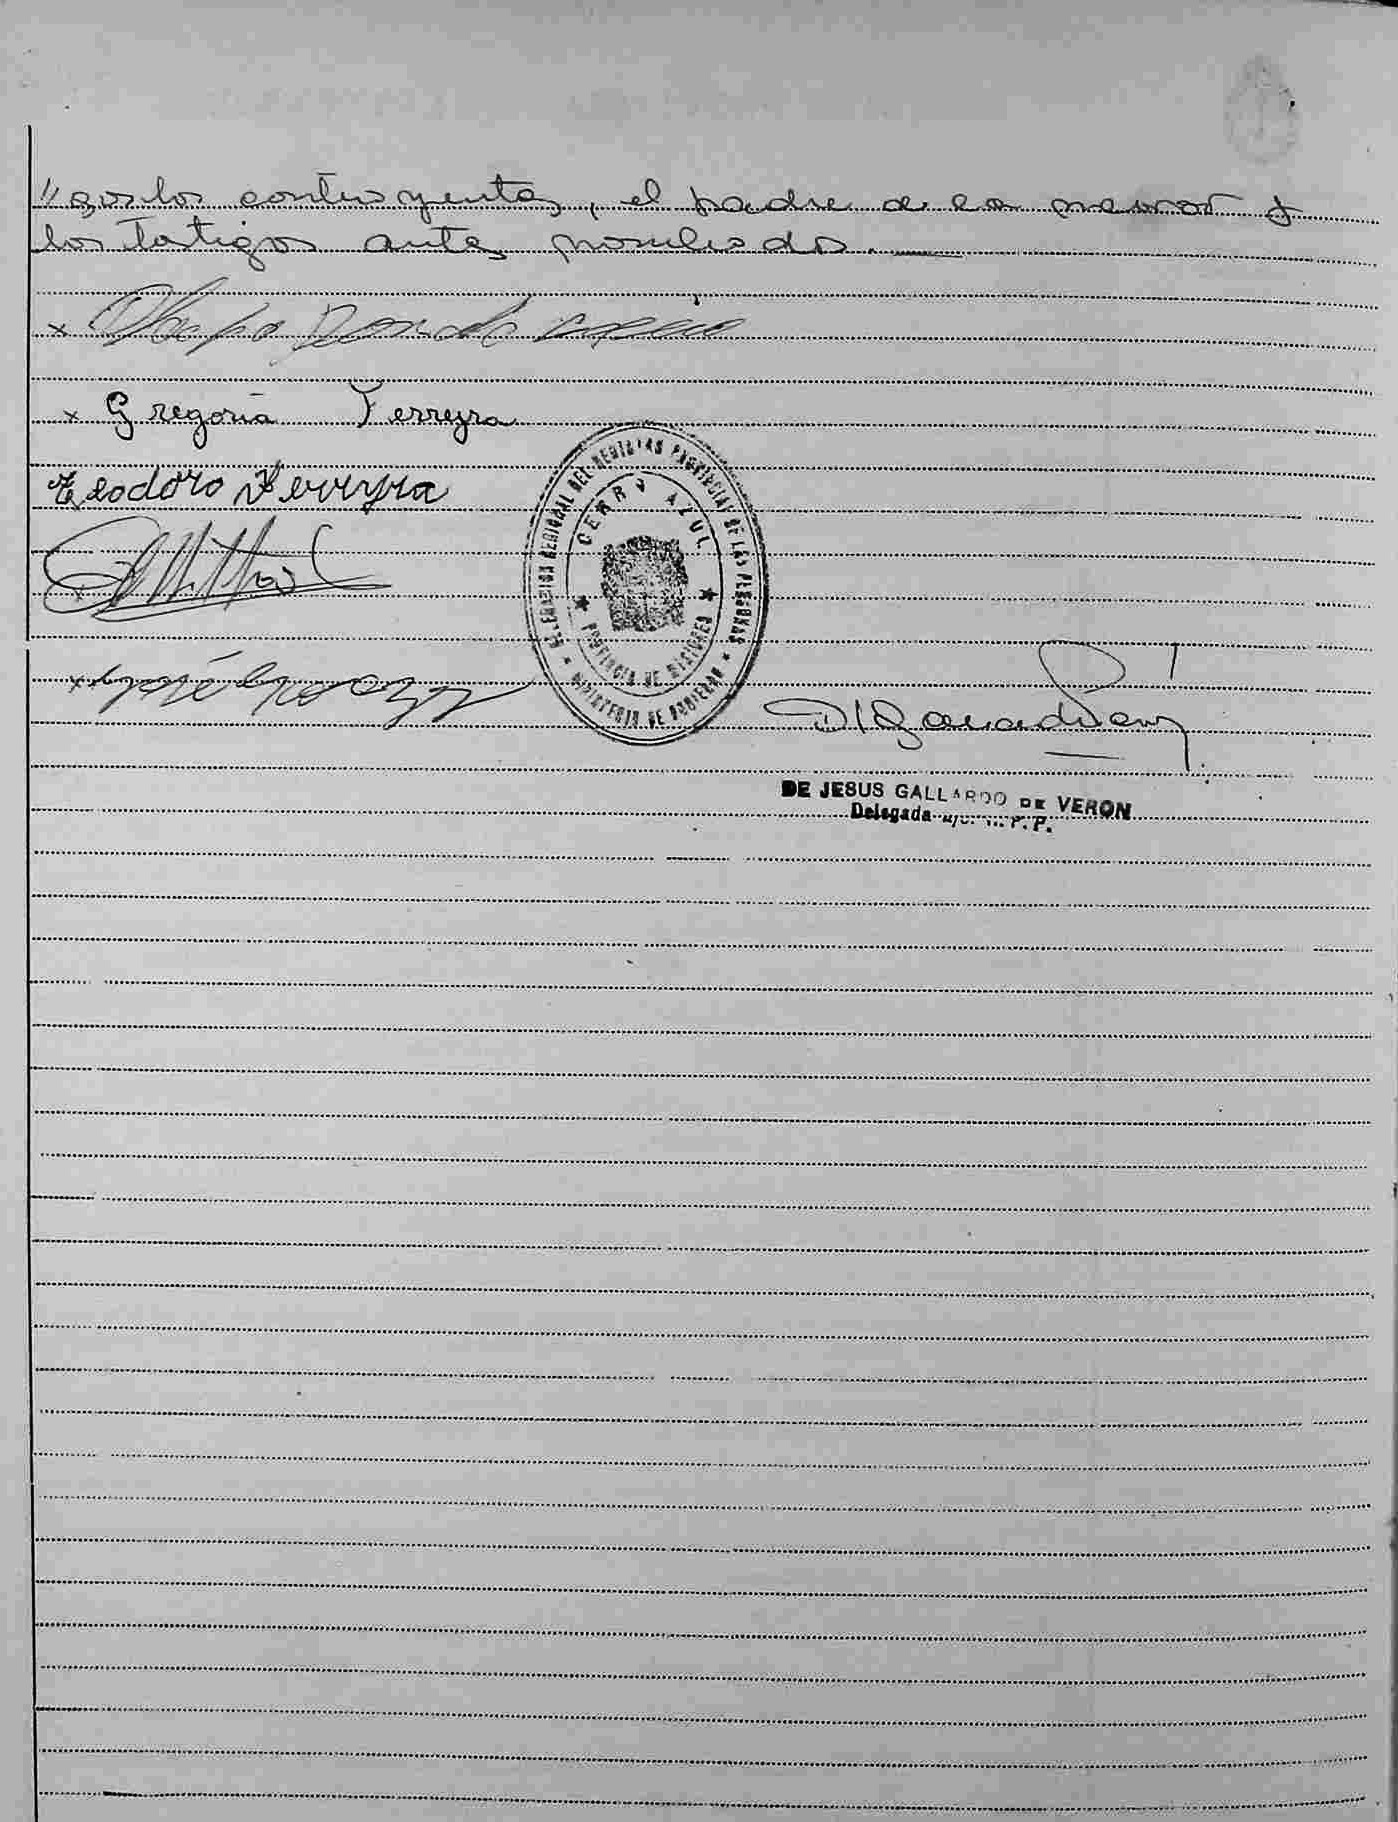 "gos los contrayentes, el padre de la menor y
los Testigos antes nombrados.
x
x Gregoria Ferreyra
Teodoro Ferreyra
x
x José
DELEGACION REGIONAL DEL REGISTRO PROVINCIAL DE LAS PERSONAS
CERRO AZUL
PROVINCIA DE MISIONES
MINISTERIO DE GOBIERNO
DE JESUS GALLARDO DE VERON
Delegada R. P. P.